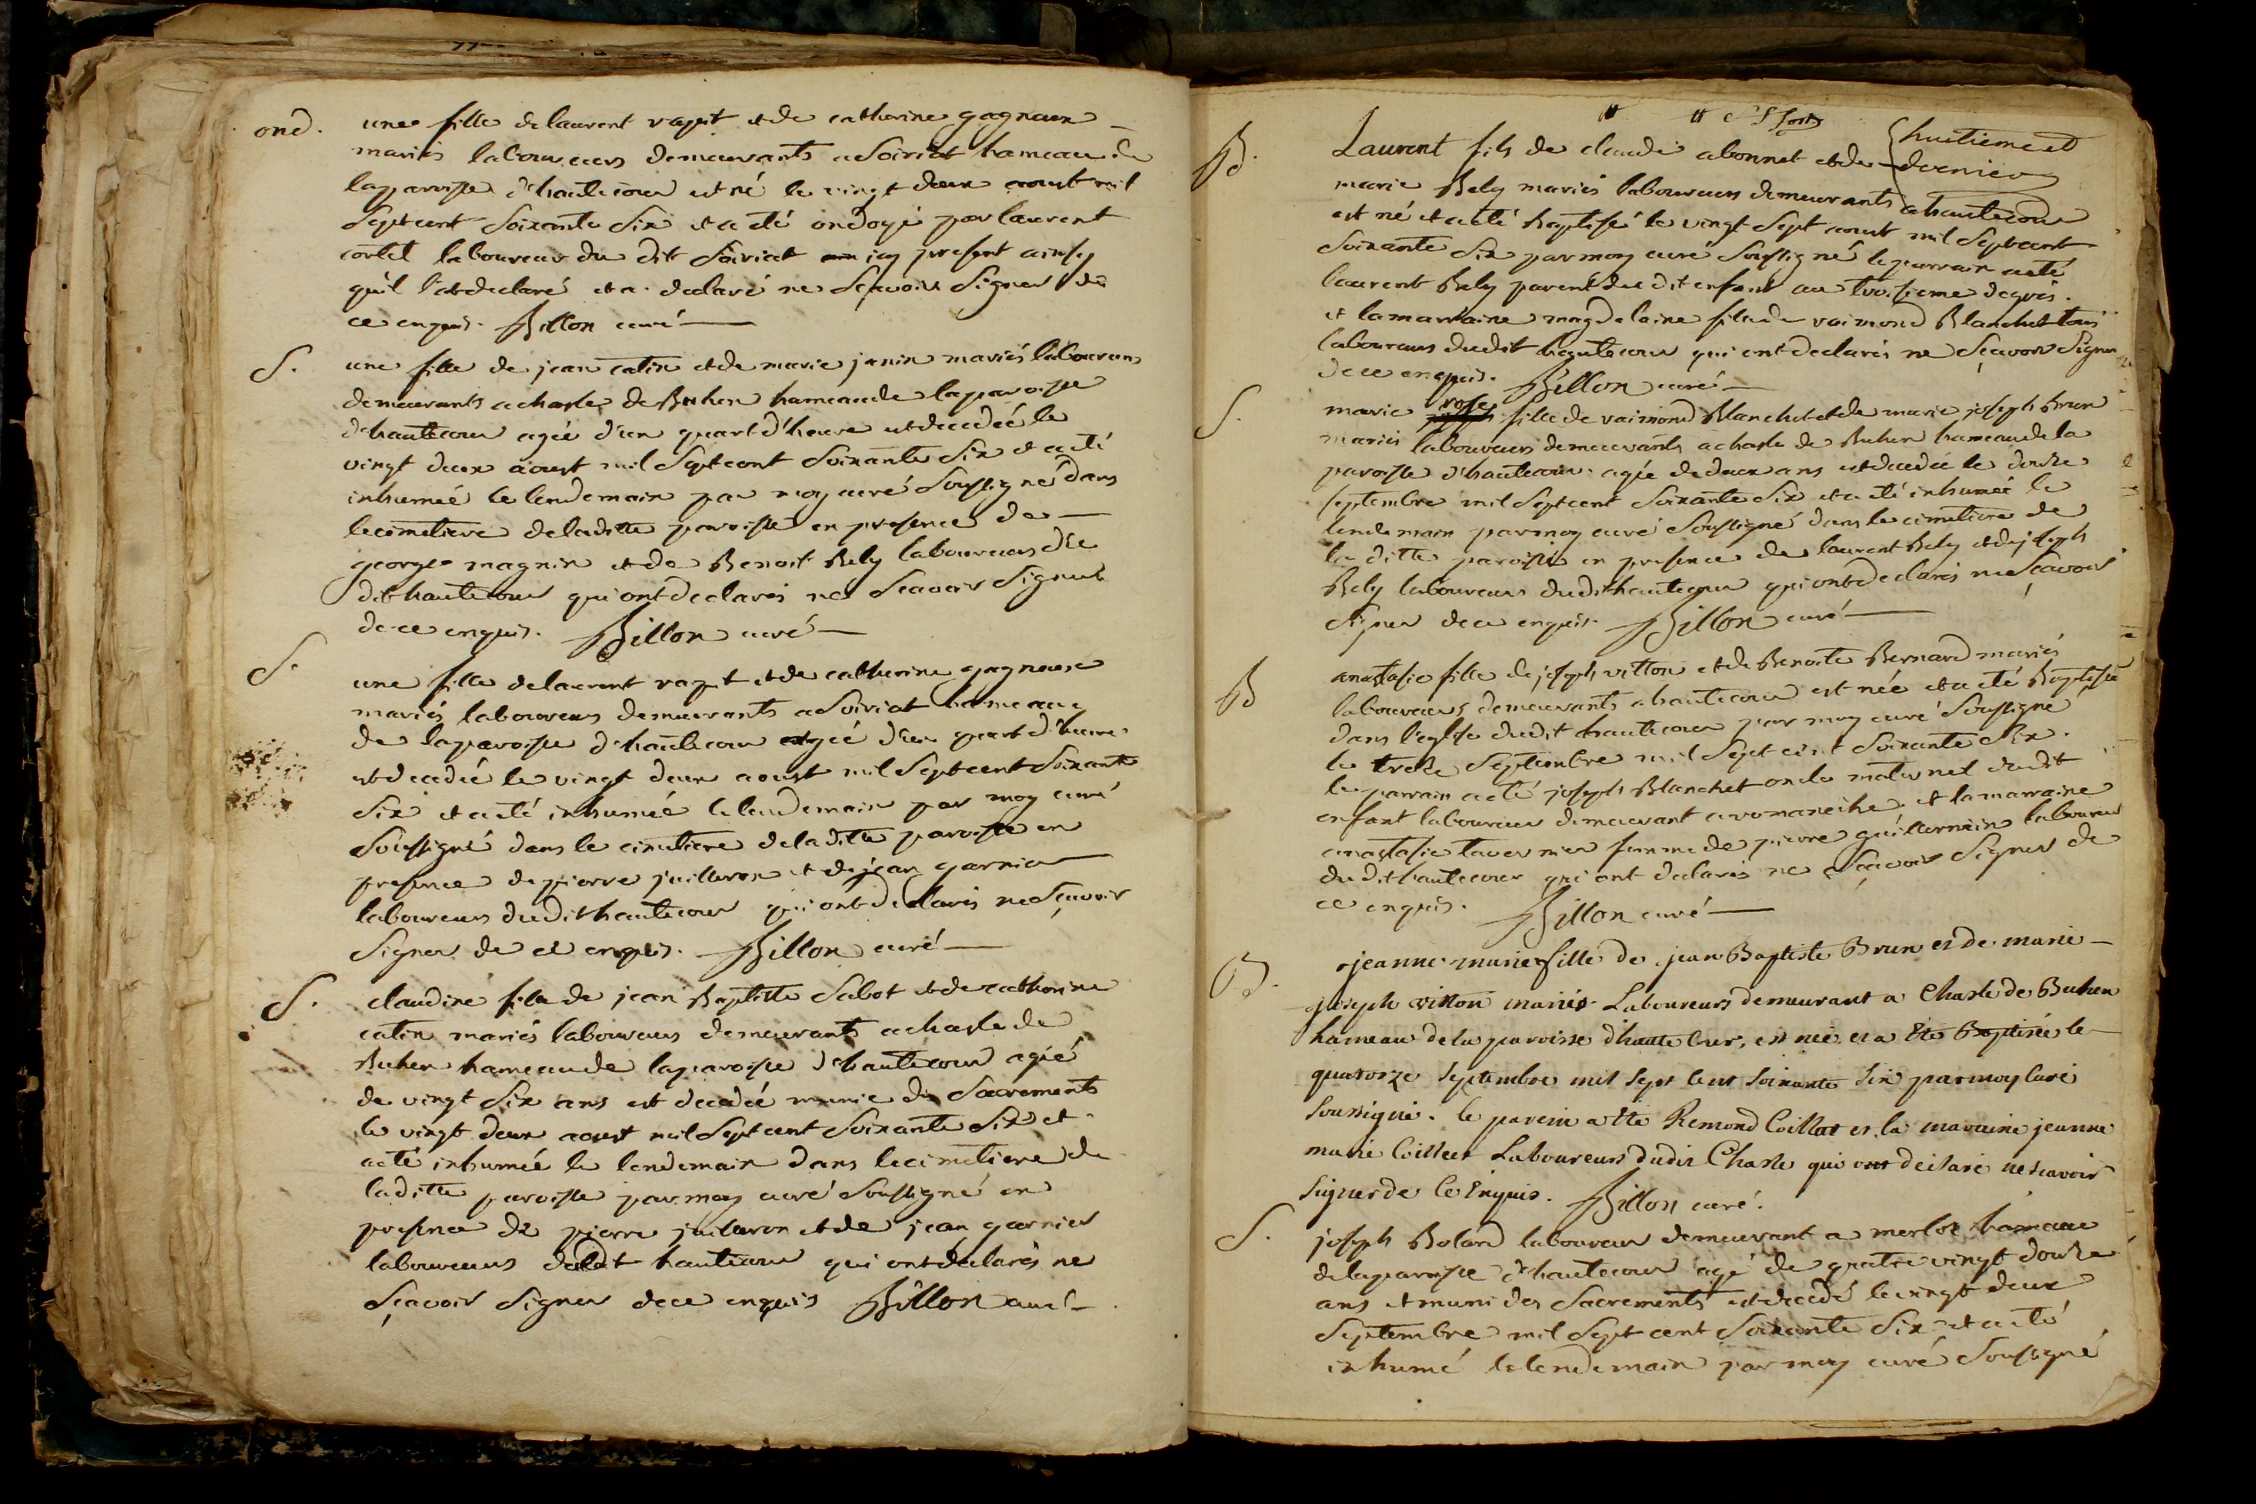 ond. une fille de laurent vapit et de catherine gagneux
mariés laboureurs demeurants a Soiriat hameau de
la paroisse d'hautecour est né le vingt deux aoust mil
Sept cent Soixante Six et a eté ondoyé par laurent
cortel laboureur du dit Soiriat icy present ainsy
qu'il l'at declaré et a declaré ne Scavoir Signer de
ce enquis. Billon curé
S. une fille de jean catin et de marie janin mariés laboureurs
demeurants a chasle de Buhen hameau de la paroisse
d'hautecour agée d'un quart d'heure est decedée le
vingt deux aoust mil Sept cent Soixante Six et a eté
inhumée le lendemain par moy curé Soussigné dans
le cimetiere de la ditte paroisse en presence de
george magnin et de Benoit Bely laboureurs du
dit hautecour qui ont declarés ne Scavoir Signer
de ce enquis. Billon curé
S. une fille de laurent vapit et de catherine gagneux
mariés laboureurs demeurants a Soiriat hameau
de la paroisse d'hautecour agée d'un quart d'heure
est decedée le vingt deux aoust mil Sept cent Soixante
Six et a eté inhumée le lendemain par moy curé
Soussigné dans le cimetiere de la ditte paroisse en
presence de pierre juilleron et de jean garnier
laboureurs du dit hautecour qui ont declarés ne Sçavoir
Signer de ce enquis. Billon curé
S. claudine fille de jean Baptiste Sabot et de catherine
catin mariés laboureurs demeurants a chasle de
Buhen hameau de la paroisse d'hautecour agée
de vingt Six ans est decedée munie de Sacrements
le vingt deux aoust mil Sept cent Soixante Six et
a eté inhumée le lendemain dans le cimetiere de
la ditte paroisse par moy curé Soussigné en
presence de pierre juilleron et de jean garnier
laboureurs du dit hautecour qui ont declarés ne
Sçavoir Signer de ce enquis Billon curé
huitieme et
dernier
B. Laurent fils de claude abonnet et de
marie Bely mariés laboureurs demeurants a hautecour
est né et a eté Baptisé le vingt Sept aoust mil Sept cent
Soixante Six par moy curé Soussigné le parrain a eté
laurent Bely parent du dit enfant au troisieme degrés.
et la marraine magdelaine fille de raimond Blanchet tous
laboureurs du dit hautecour qui ont declarés ne Sçavoir Signer
de ce enquis. Billon curé
S. marie rose fille de raimond Blanchet et de marie joseph brun
mariés laboureurs demeurants a chasle de Buhen hameau de la
paroisse d'hautecour agée de deux ans est decedée le douze
septembre mil Sept cent Soixante Six et a eté inhumée le
lendemain par moy curé Soussigné dans le cimetiere de
la ditte paroisse en presence de laurent Bely et de joseph
Bely laboureurs du dit hautecour qui ont declarés ne Sçavoir
Signer de ce enquis. Billon curé
B anastasie fille de joseph vitton et de Benoite Bernard mariés
laboureurs demeurants a hautecour est née et a eté Baptisée
dans l'eglise du dit hautecour par moy curé Soussigné
le treize Septembre mil Sept cent Soixante Six.
le parrain a eté joseph Blanchet oncle maternel du dit
enfant laboureur demeurant a romaneche et la marraine
anastasie tavernier femme de pierre guillermin laboureur
du dit hautecour qui ont declarés ne Sçavoir Signer de
ce enquis. Billon curé
B. jeanne marie fille de jean Baptiste Brun et de marie
joseph vitton mariés Laboureurs demeurant a Chasle de Buhen
hameau de la paroisse d'haute Cour, est née et a Eté Baptisée le
quatorze Septembre mil Sept Cent Soixante Six par moy Curé
Soussigné. le parein a Eté Remond Coillat et la maraine jeanne
marie Coillet Laboureurs du dit Chasle qui ont declaré ne Scavoir
Signer de Ce Enquis. Billon curé.
S. joseph Bolard laboureur demeurant a merloz hameau
de la paroisse d'hautecour agé de quatre vingt douze
ans et muni des Sacrements est decedé le vingt deux
Septembre mil Sept cent Soixante Six et a eté
inhumé le lendemain par moy curé Soussigné